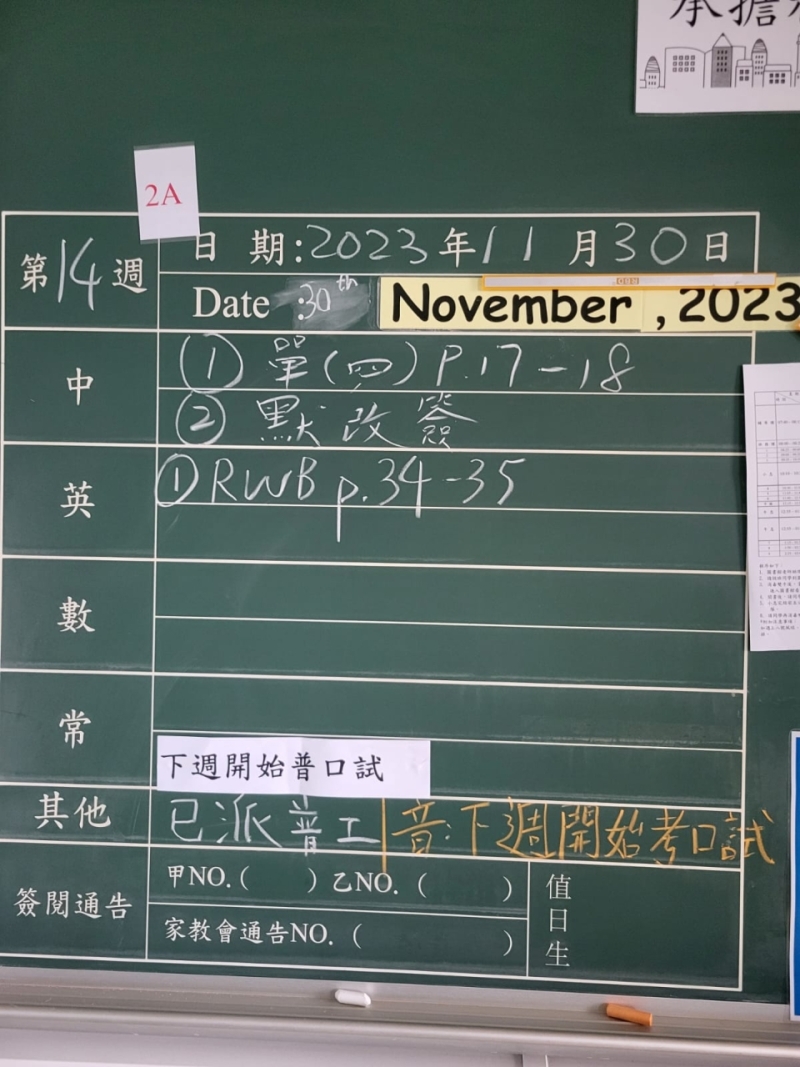 承擔
2A
第14週
日 期:2023年11月30日
Date :30th November , 2023
中
① 單(四) P.17-18
② 默改簽
英
① RWB p.34-35
數
常
下週開始普口試
其他
已派普工 音:下週開始考口試
簽閱通告
甲NO.( ) 乙NO. ( )
家教會通告NO. ( )
值日生